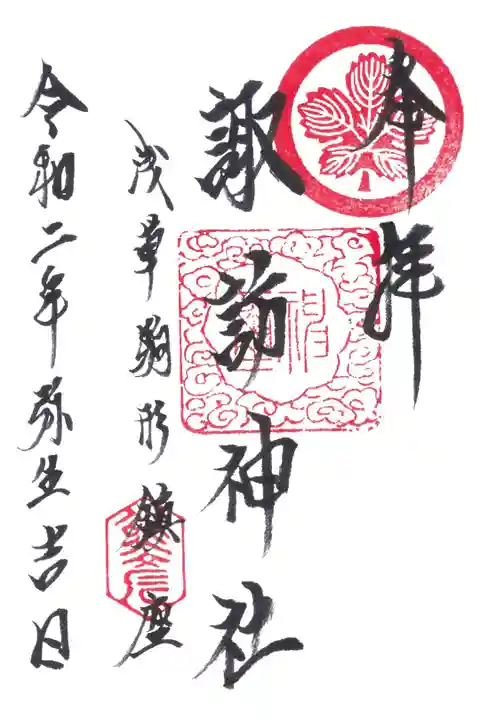 奉拝
諏訪神社
浅草駒形鎮座
令和二年弥生吉日